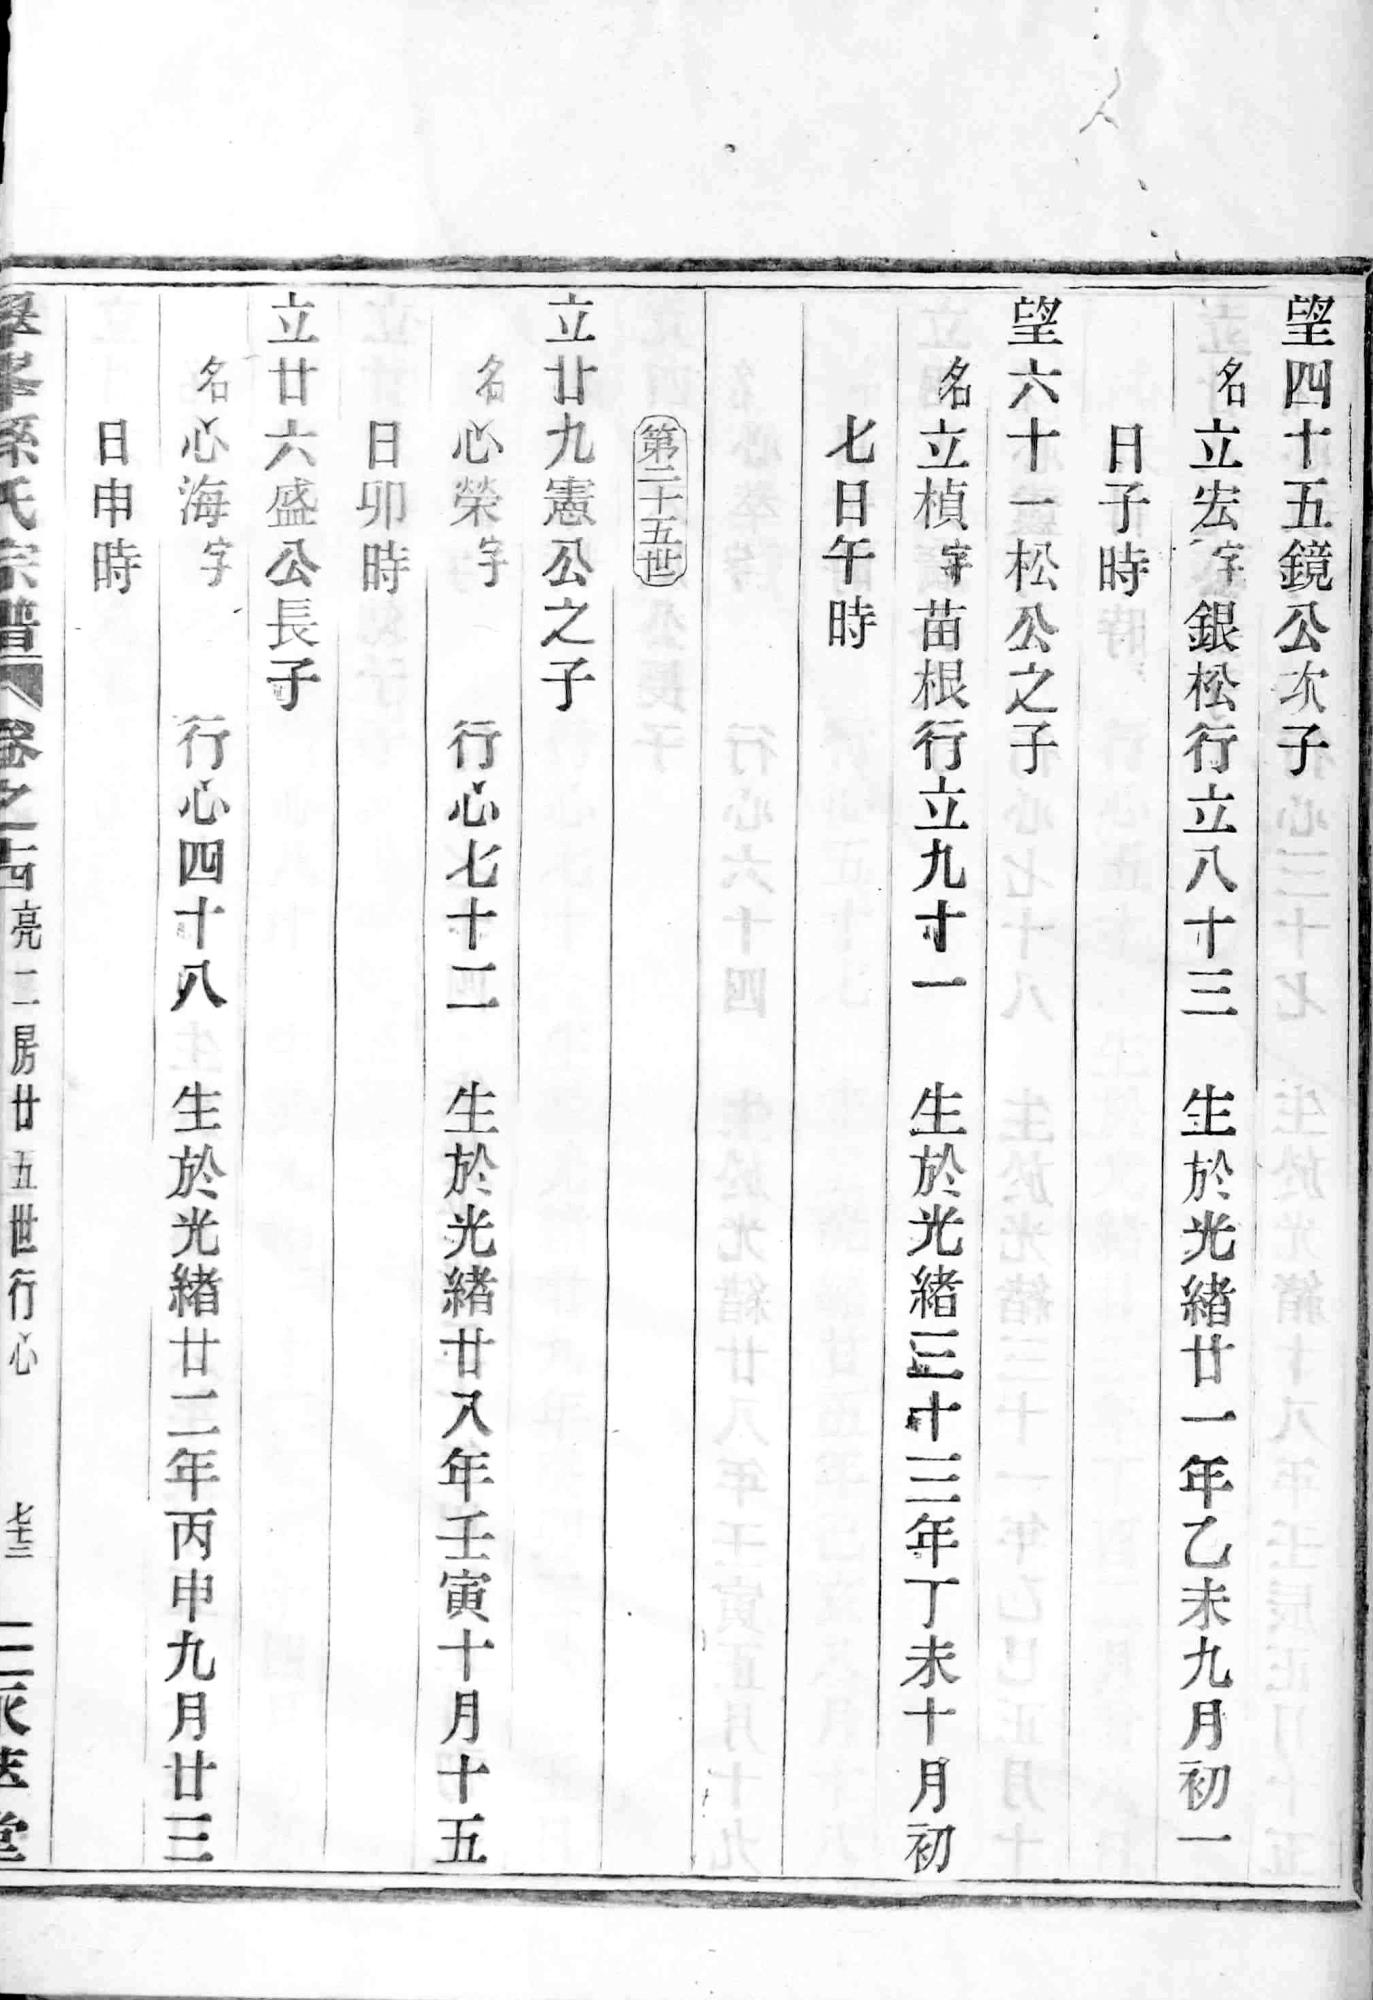 望四十五鏡公次子
名立宏字銀松行立八十三　生於光緒廿一年乙未九月初一
日子時
望六十一松公之子
名立楨字苗根行立九十一　生於光緒三十三年丁未十月初
七日午時
第二十五世
立廿九憲公之子
名心榮字　行心七十二　生於光緒廿八年壬寅十月十五
日卯時
立廿六盛公長子
名心海字　行心四十八　生於光緒廿二年丙申九月廿三
日申時
峯孫氏宗譜　卷之十四　亮二房廿五世行心　七十三　堂